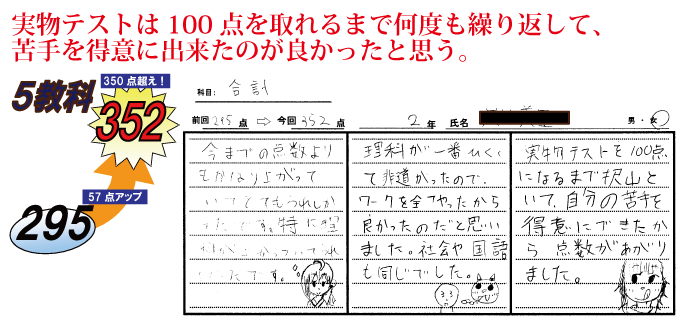 実物テストは100点を取れるまで何度も繰り返して、
苦手を得意に出来たのが良かったと思う。
5教科
350点超え！
352
57点アップ
295
科目: 合計
前回 295 点 ⇨ 今回 352 点 2 年 氏名 男・女
今までの点数より
もかなり上がって
いてとてもうれしか
ったです。特に理
です。
理科が一番ひくく
て非道かったので、
ワークを全てやったから
良かったのだと思い
ました。社会や国語
も同じでした。
実物テストを100点
になるまで沢山と
いて、自分の苦手を
得意にできたか
ら 点数があがり
ました。